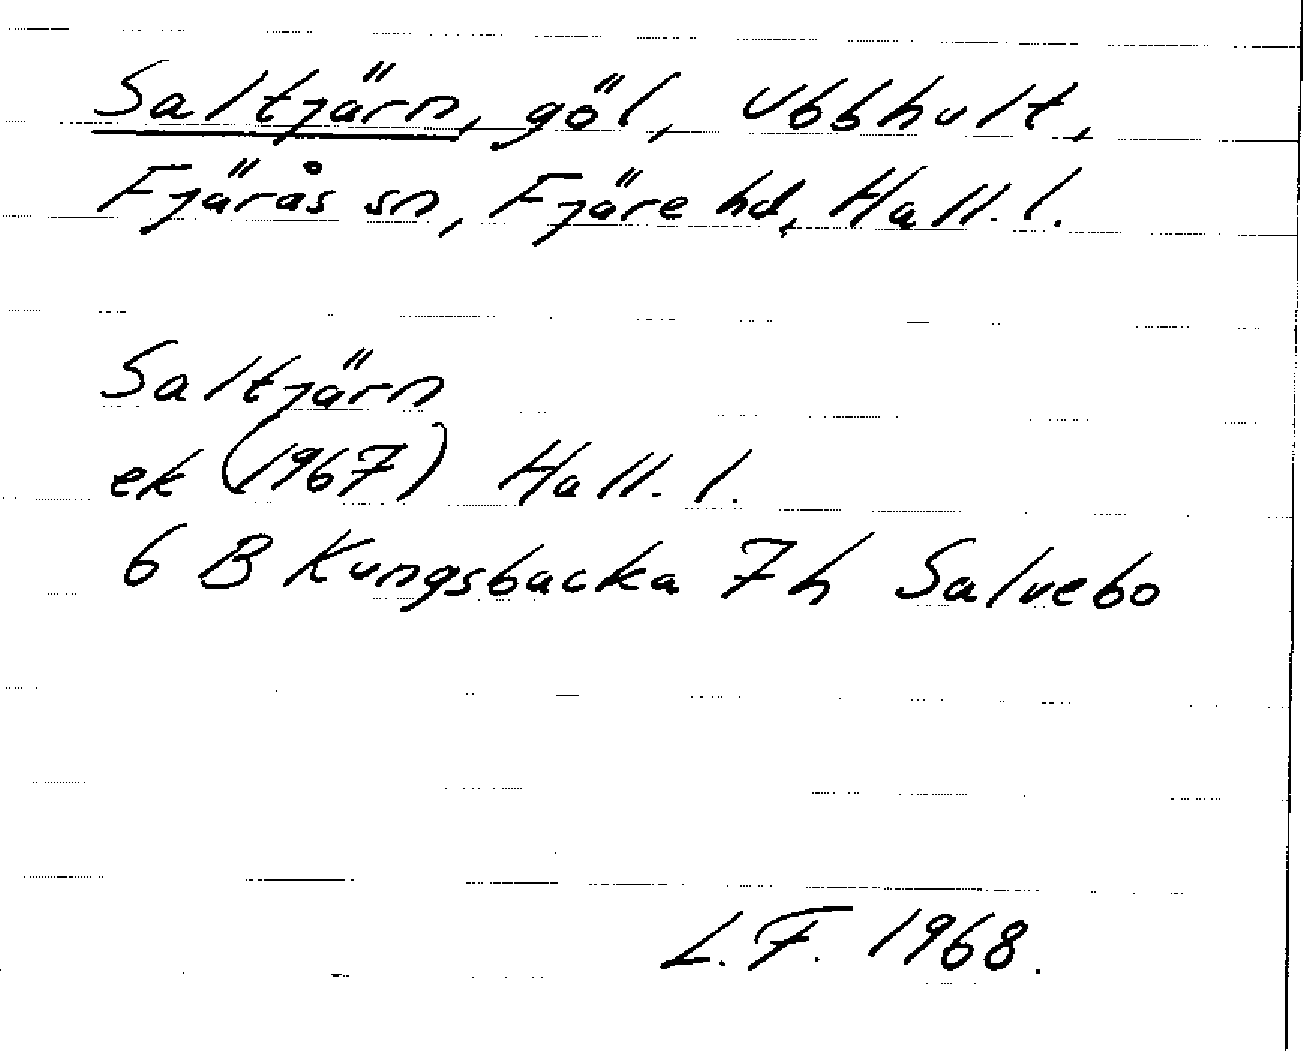 Saltjärn, göl, Ubbhult,
Fjärås sn, Fjäre hd, Hall. l.
Saltjärn
ek (1967) Hall. l.
6 B Kungsbacka 7h Salvebo
L.F. 1968.